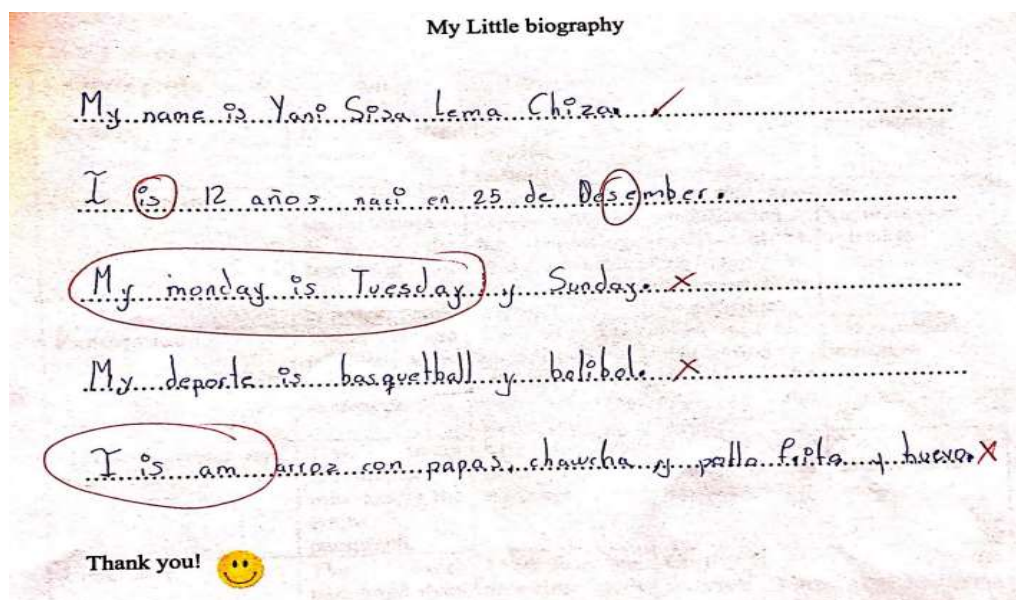 My Little biography
My name is Yani Sisa Lema Chiza.
I is 12 años naci en 25 de Desember.
My monday is Tuesday y Sunday.
My deporte is basquetball y bolibol.
I is am arroz con papas, chawcha y pollo frito y huevo.
Thank you!